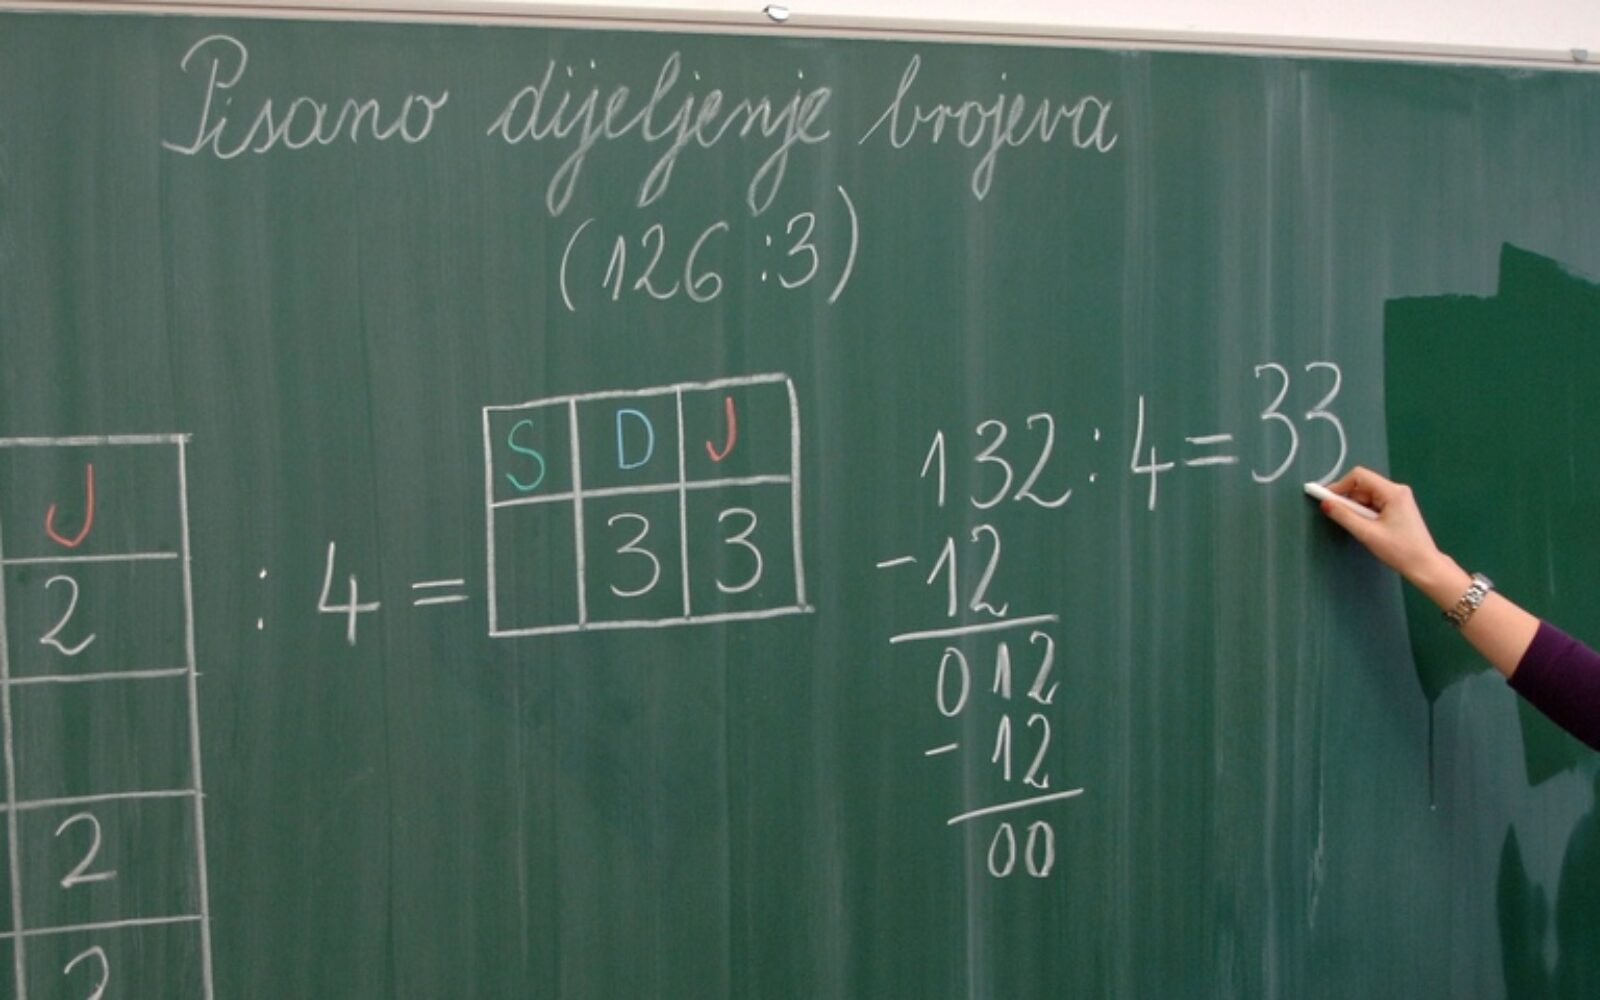 Pisano dijeljenje brojeva
(126 :3)
S D J
J
132 : 4 = 33
2 : 4 = 3 3
-12
012
-12
2
00
2